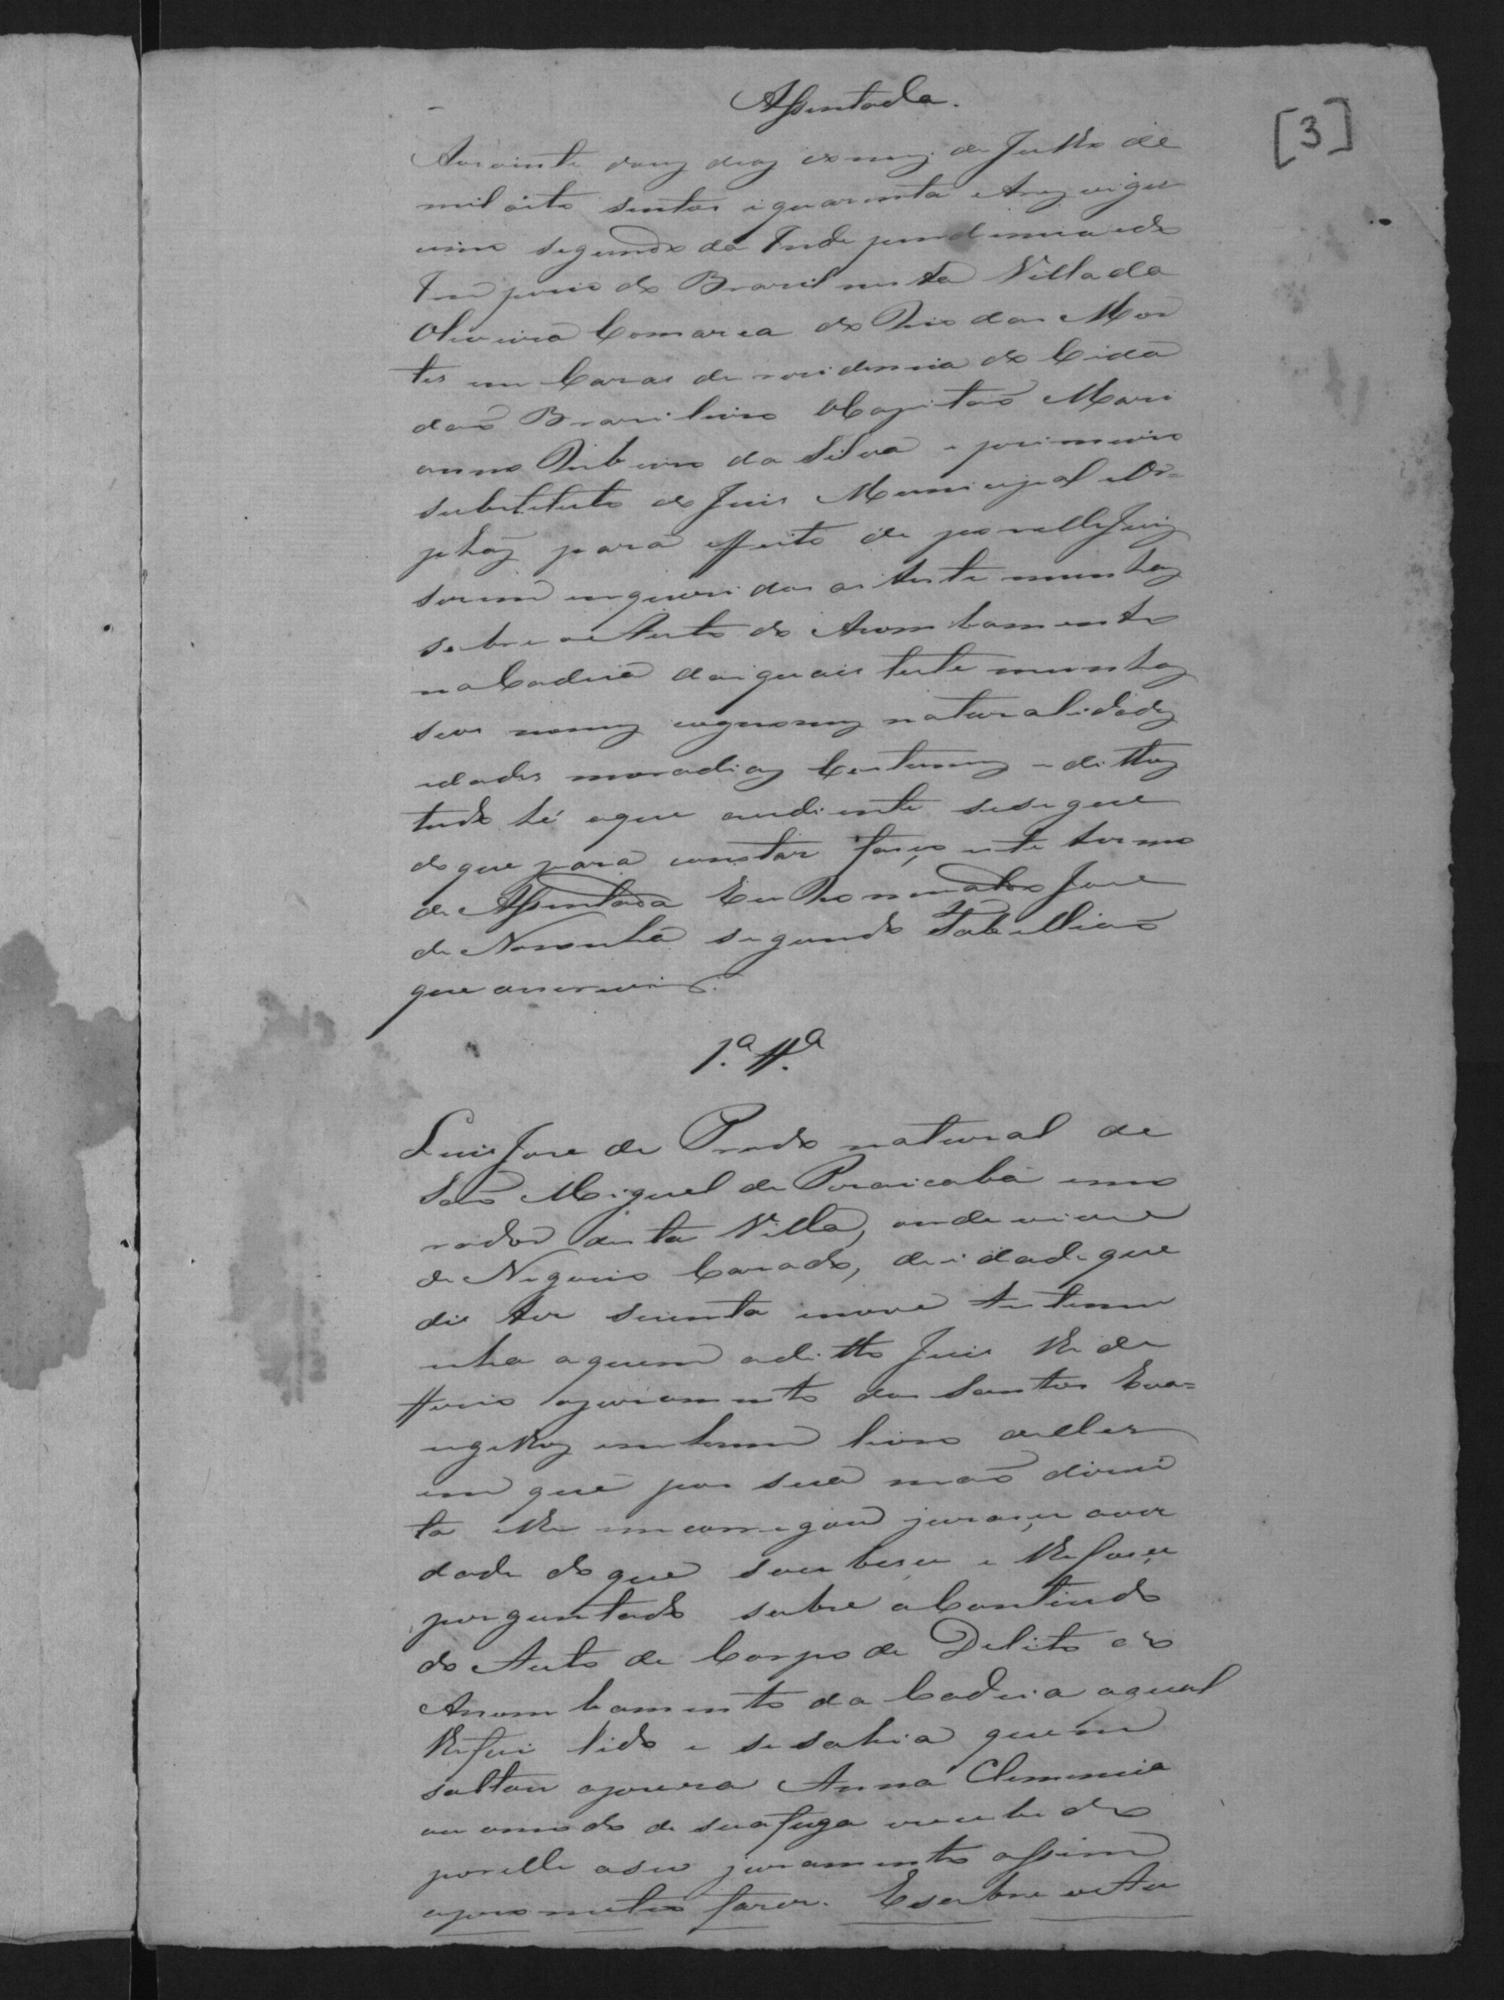 Assentada.
[3]
Aos vinte dous dias do mes de Julho de
mil oito sentos e quarenta e tres vige
cimo segundo da Independencia e do
Imperio do Brasil nesta Villa da
Oliveira Comarca do Rio das Mor
tes em Casas de rezidencia do Cida
dão Brasileiro o Capitão Mari
anno Ribeiro da Silva e primeiro
substituto do Juis Municipal e Or=
phaõs para effeito de por elle Juiz
serem inqueridas as testemunhas
sobre o Auto do Arombamento
na Cadeia das quais testemunhas
seus nomes cognomes naturalidades
idades moradias Custumes e dittos
tudo hé o que ao diente se segue
do que para constar faço este termo
de Assentada Eu José
de Noronha segundo Tabellião
que o escrevi
1.ª tt.ª
Luis Jose do Prado natural de
São Miguel de Piracicaba e mo
rador desta Villa, onde vive
de Negocio Casado, de idade que
dis ter secenta e nove testemu
nha a quem o ditto Juis lhe de
fferio o juramento dos Santos Eva=
ngelhos em hum livro delles
em que pos sua mão direi
ta e lhe encarregou jurase a ver
dade do que soubese e lhe fose
perguntado sobre o Contiudo
do Auto de Corpo de Delito e do
Arombamento da Cadeia o qual
lhe foi lido e se sabia quem
soltou a preza Anna Clemencia
ou o modo de sua fuga recebido
por elle o seu juramento assim
o prometeo fazer. E sobre o Au